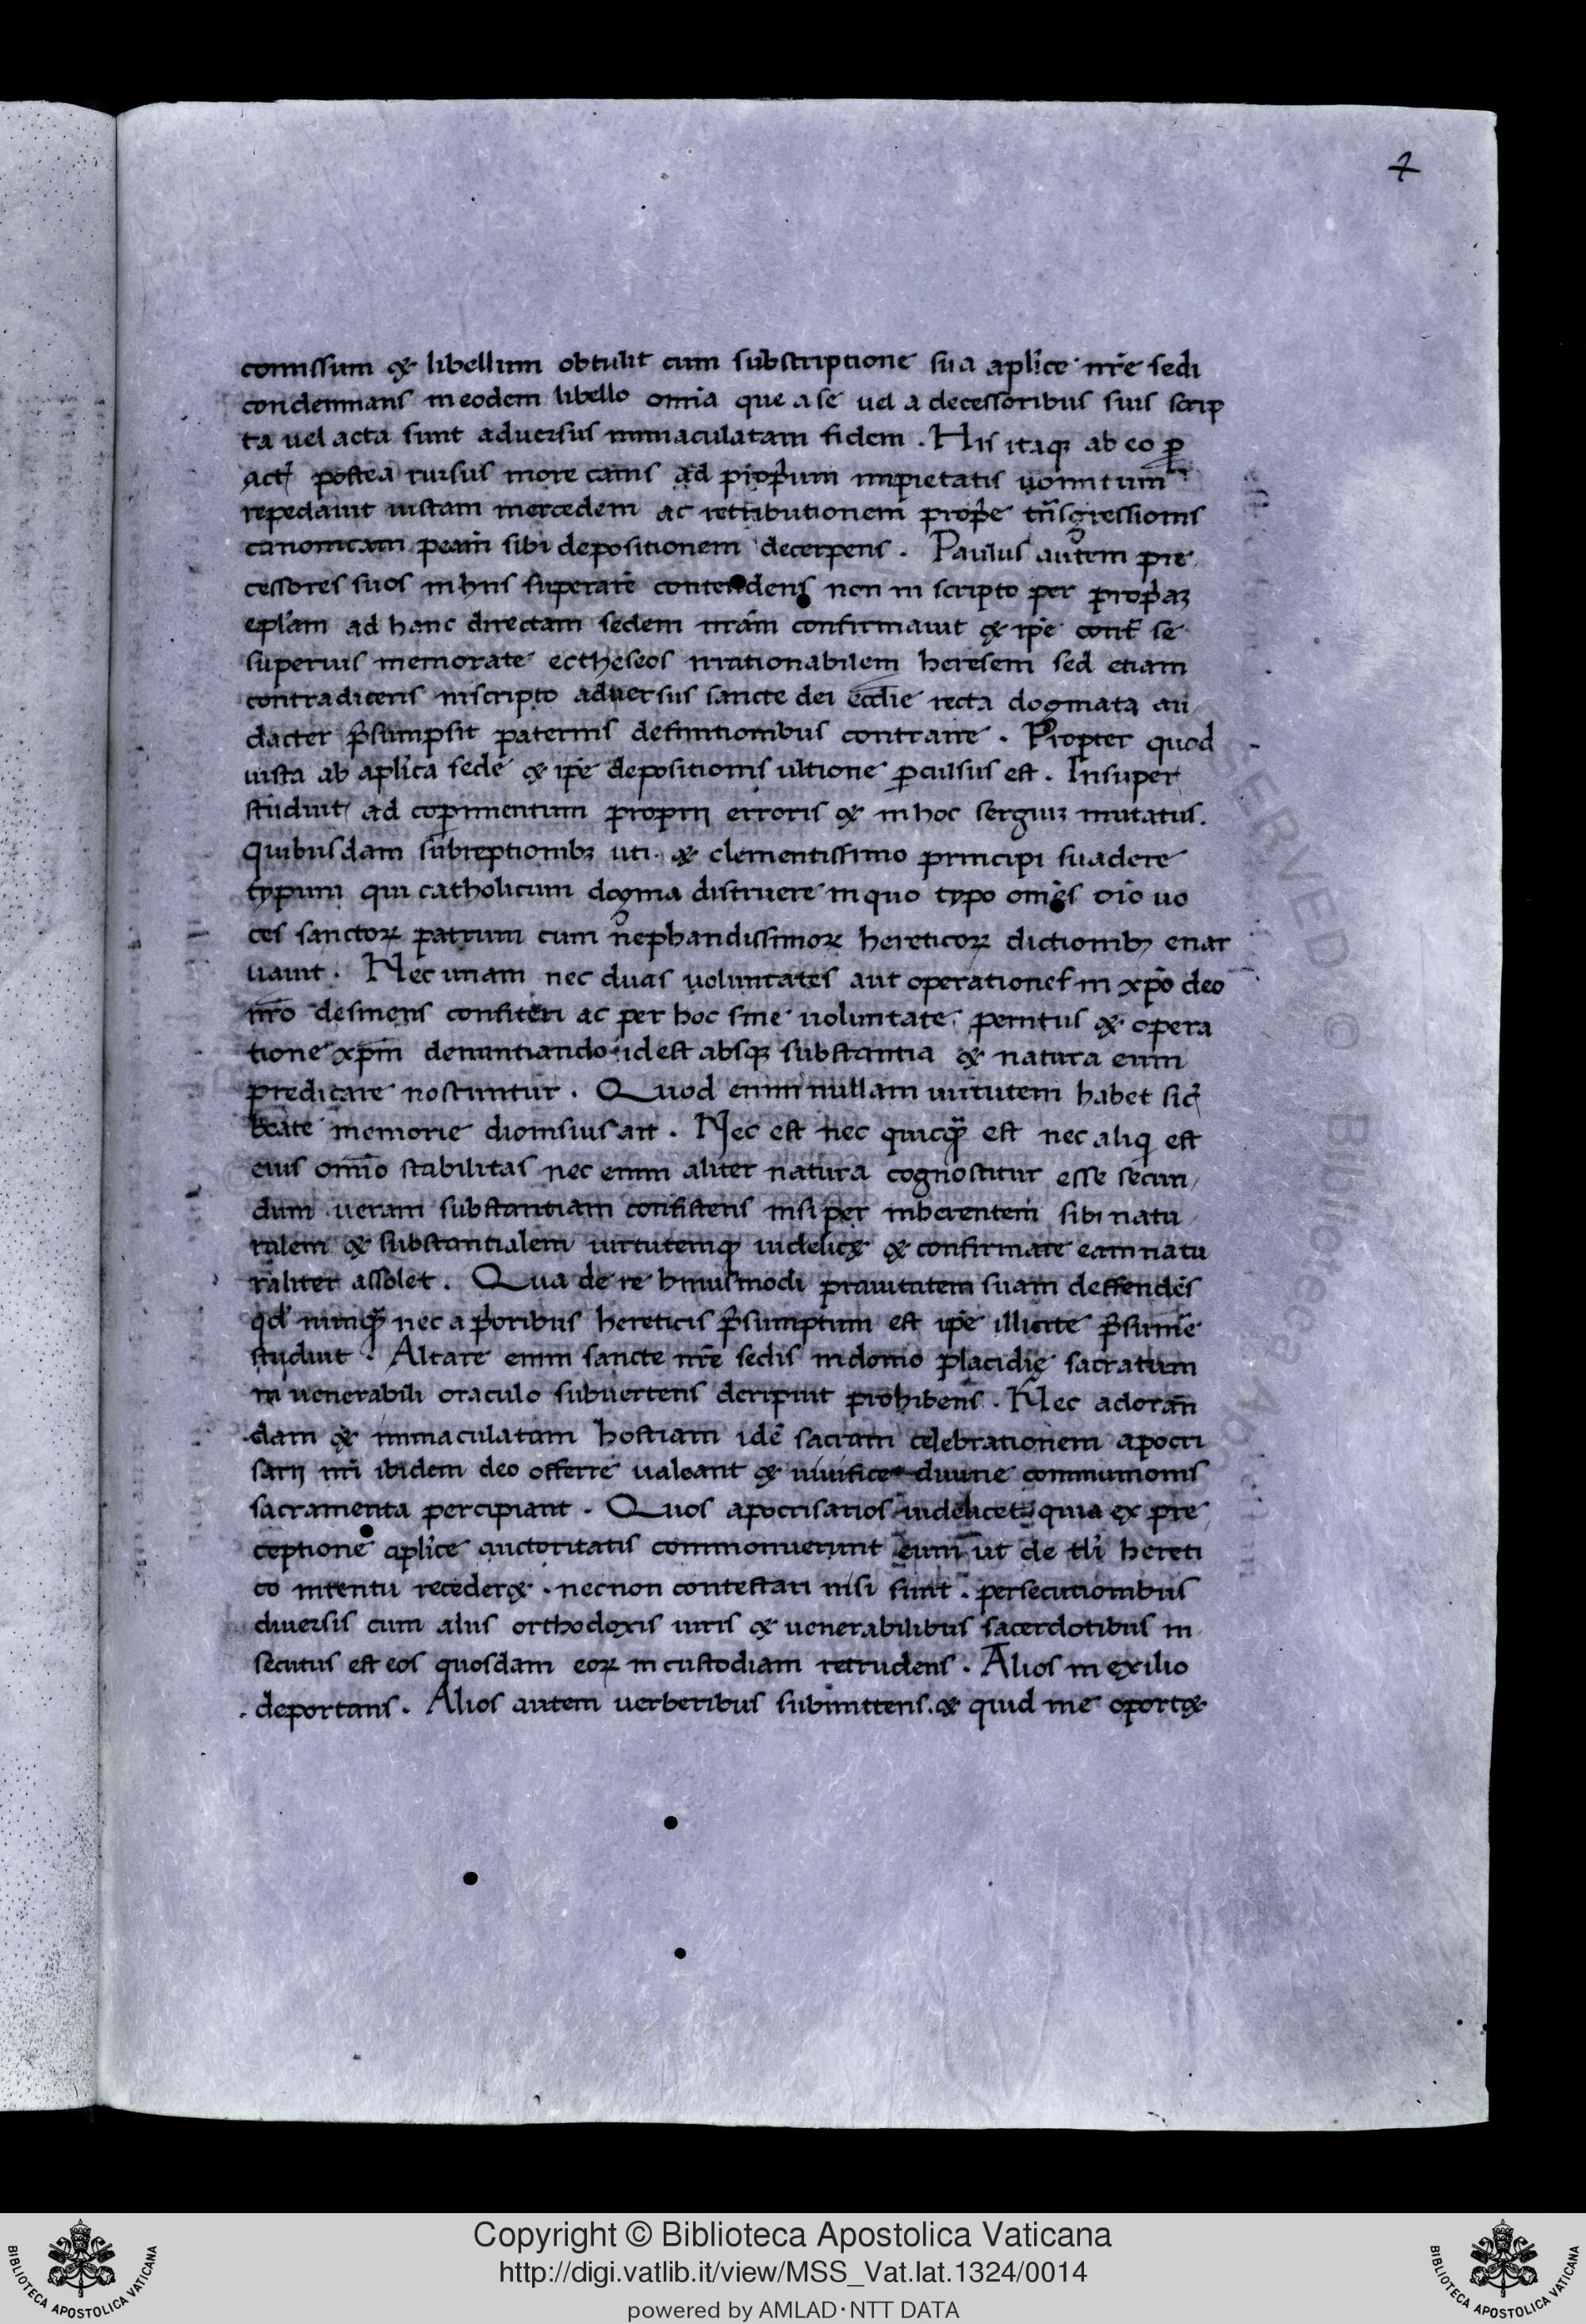 4
comissum & libellum obtulit cum subscriptione sua aplice nre sedi
condemnans in eodem libello omia que a se uel a decessoribus suis scrip
ta uel acta sunt aduersus immaculatam fidem . His itaq; ab eo p
act postea rursus more canis ad propium impietatis uomitum
repedauit iustam mercedem ac retributionem prope tnsgressionis
canonicam penam sibi depositionem decerpens . Paulus autem pre
cessores suos in hiis superare contendens non in scripto per propaz
eplam ad hanc directam sedem nram confirmauit & ipe cont se
superuis memorate ectheseos irrationabilem heresem sed etiam
contradicens inscripto aduersus sancte dei ecclie recta dogmata au
dacter psumpsit paternis definitionibus contraire . Propter quod
iusta ab aplica sede & ipe depositionis ultione pculsus est . Insuper
studuit ad copimentum proprij erroris & in hoc sergium mutatus .
quibusdam subreptionib; uti . & clementissimo principi suadere
typum qui catholicum dogma distruere in quo typo omes oio uo
ces sanctoꝝ patrum cum nephandissimoꝝ hereticoꝝ dictionib; enar
uauit . Nec unam nec duas uoluntates aut operationes in xpo deo
nro desinens confiteri ac per hoc sine uoluntate penitus & opera
tione xpm denuntiando id est absq; substantia & natura eum
predicare noscuntur . Quod enim nullam uirtutem habet sic
beate memorie dionisius ait . Nec est nec quicq est nec aliq est
eius omio stabilitas nec enim aliter natura cognoscitur esse secun
dum ueram substantiam consistens nisi per inherentem sibi natu
ralem & substantialem uirtutemq; uidelic& & confirmare eam natu
raliter assolet . Qua de re huiusmodi prauitatem suam deffendes
qd nunq nec a prioribus hereticis psumptum est ipe illicite psume
studuit . Altare enim sancte nre sedis in domo placidie sacratum
in uenerabili oraculo subuertens deripuit prohibens . Nec adoran
dam & immaculatam hostiam ide sacram celebrationem apocri
sarij nri ibidem deo offerre ualeant & uiuifice diuine communionis
sacramenta percipiant . Quos apocrisarios uidelicet quia ex pre
ceptione aplice auctoritatis commonuerunt eum ut de tli hereti
co intentu receder& . necnon contestari nisi sunt . persecutionibus
diuersis cum aliis orthodoxis uiris & uenerabilibus sacerdotibus in
secutus est eos quosdam eoꝝ in custodiam retrudens . Alios in exilio
deportans . Alios autem uerberibus submittens . & quid me oport&
RESERVED © Biblioteca Apo
BIBLIOTECA APOSTOLICA VATICANA
Copyright © Biblioteca Apostolica Vaticana
http://digi.vatlib.it/view/MSS_Vat.lat.1324/0014
powered by AMLAD·NTT DATA
BIBLIOTECA APOSTOLICA VATICANA